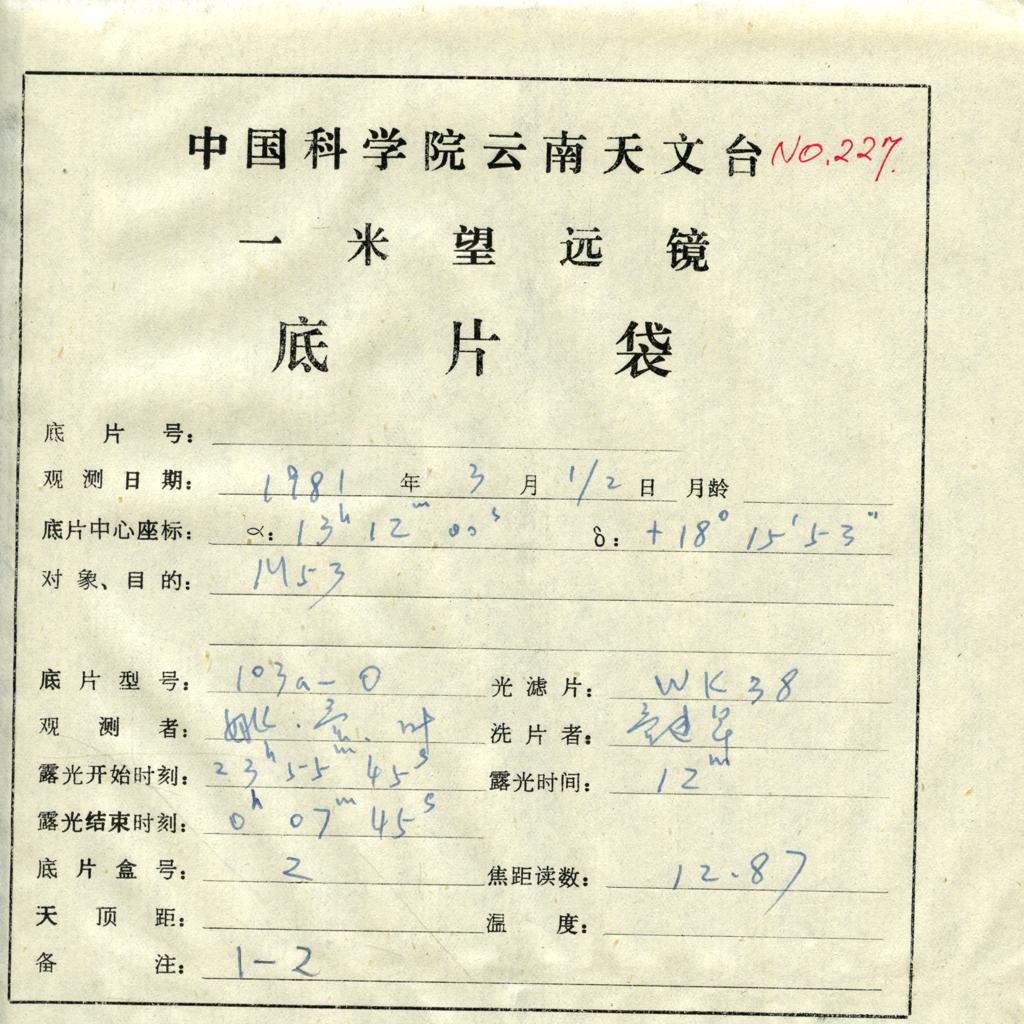 中国科学院云南天文台 NO.227.
一米望远镜
底片袋
底片号:
观测日期: 1981 年 3 月 1/2 日 月龄
底片中心座标: α: 13h 12m 00s δ: +18° 15' 53"
对象、目的: M53
底片型号: 103a-O 光滤片: WK38
观测者: 姚. 洗片者:
露光开始时刻: 23h 55m 45s 露光时间: 12m
露光结束时刻: 0h 07m 45s
底片盒号: 2 焦距读数: 12.87
天顶距: 温度:
备注: 1-2